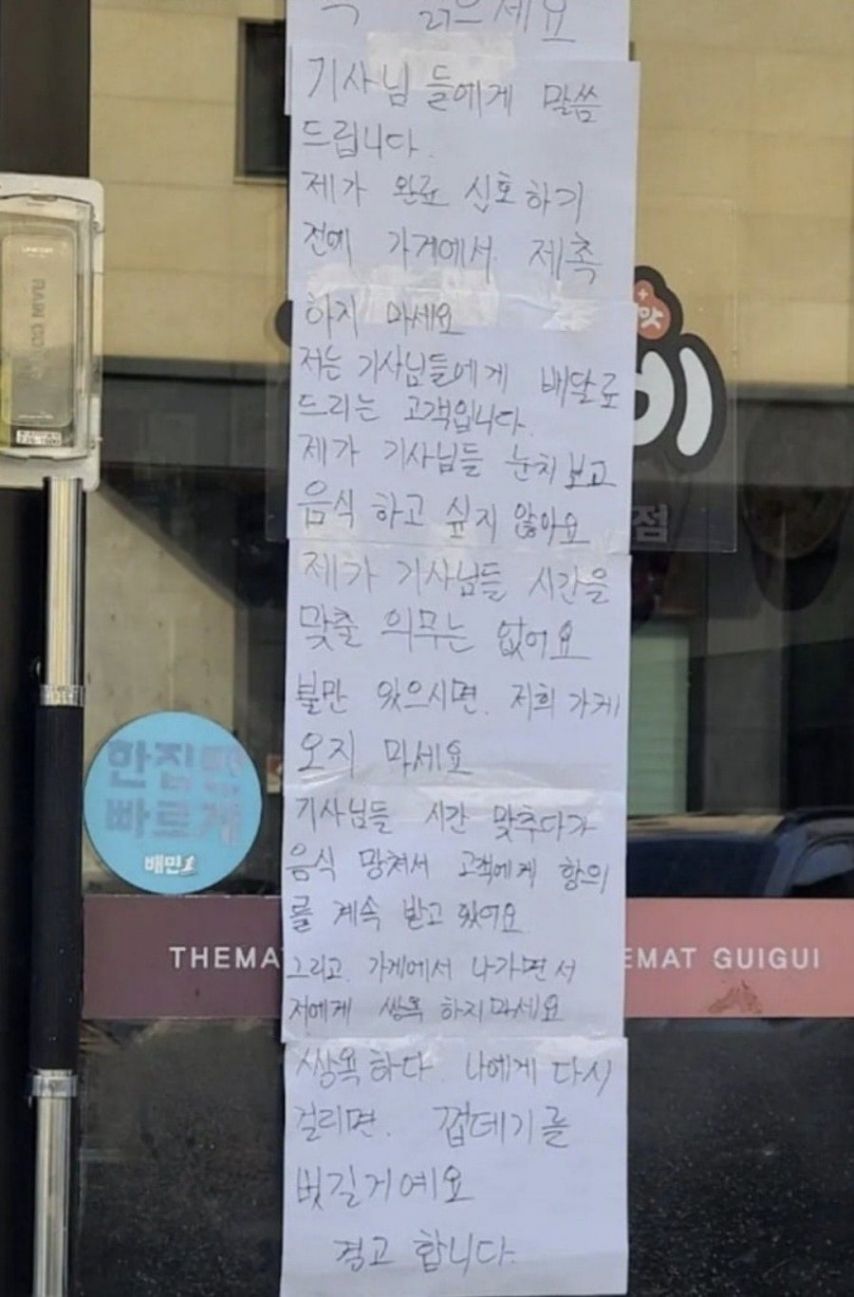 읽으세요
기사님들에게 말씀
드립니다.
제가 완료 신호하기
전에 가게에서 제촉
하지 마세요
저는 기사님들에게 배달료
드리는 고객입니다.
제가 기사님들 눈치보고
음식 하고 싶지 않아요
제가 기사님들 시간을
맞출 의무는 없어요
불만 있으시면. 저희 가게
오지 마세요
기사님들 시간 맞추다가
음식 망쳐서 고객에게 항의
를 계속 받고 있어요
그리고. 가게에서 나가면서
저에게 쌍욕 하지마세요
쌍욕하다. 나에게 다시
걸리면. 껍데기를
벗길게예요
경고 합니다.
맛
비
점
한집만
빠르게
배민
THEMA
EMAT GUIGUI